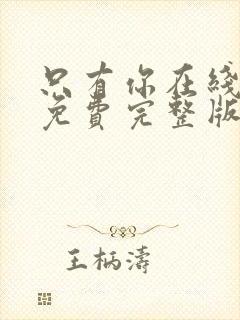 只有你在线
免费完整版
王柄涛